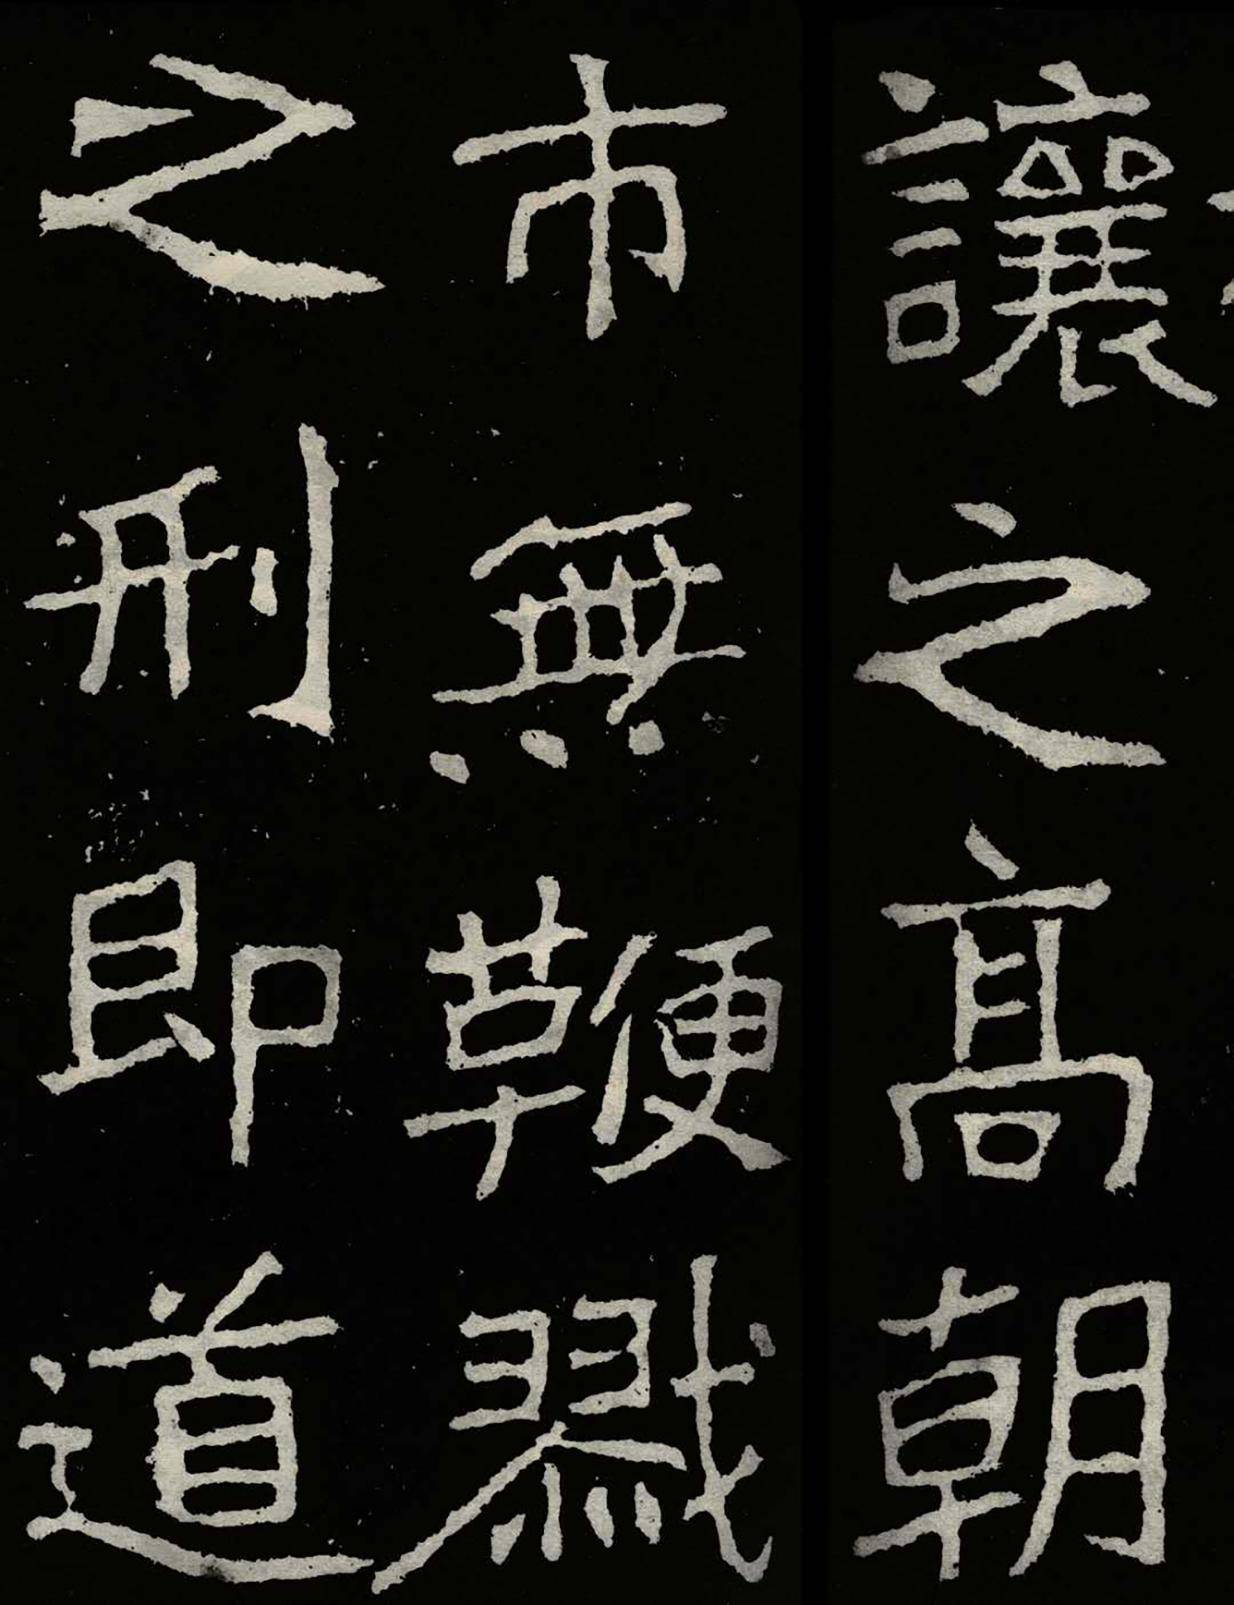 讓之高朝
市無鞭戮
之刑即道